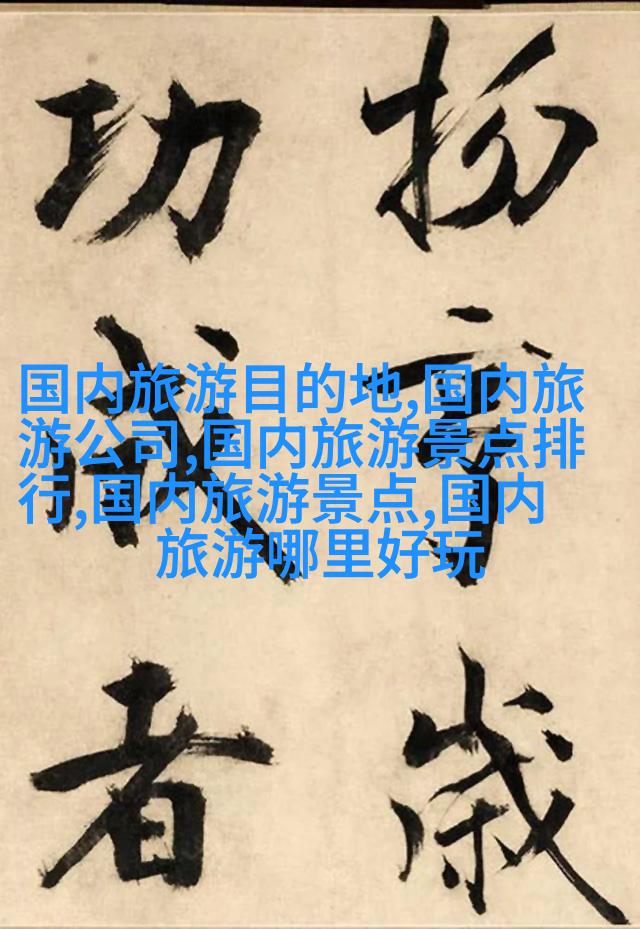 国内旅游目的地,国内旅
游公司,国内旅游景点排
行,国内旅游景点,国内
旅游哪里好玩
歲
功成者